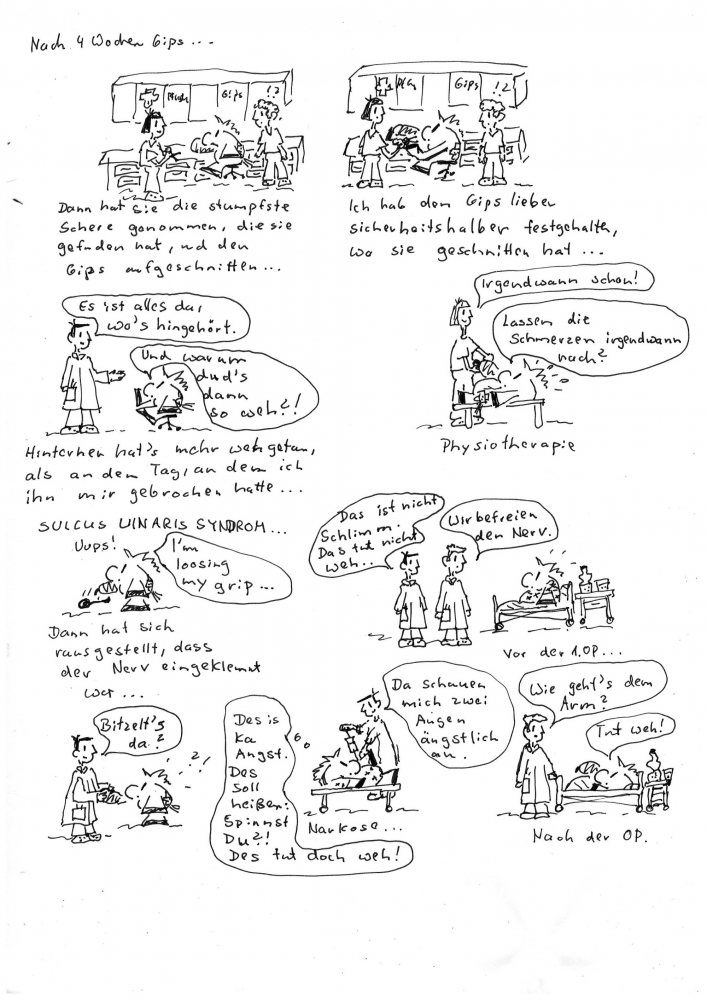 Nach 4 Wochen Gips...
Gips
!?
Gips
!?
Dann hat sie die stumpfste
Schere genommen, die sie
gefunden hat, und den
Gips aufgeschnitten...
Ich hab den Gips lieber
sicherheitshalber festgehalten,
wo sie geschnitten hat...
Es ist alles da,
wo's hingehört.
Und warum
dud's
dann
so weh?!
Hinterher hat's mehr wehgetan,
als an dem Tag, an dem ich
ihn mir gebrochen hatte...
Irgendwann schon!
Lassen die
Schmerzen irgendwann
nach?
Physiotherapie
SULCUS ULNARIS SYNDROM...
Uups!
I'm
loosing
my grip...
Dann hat sich
rausgestellt, dass
der Nerv eingeklemmt
war...
Das ist nicht
Schlimm.
Das tut nicht
weh...
Wir befreien
den Nerv.
Vor der 1.OP...
Bitzelt's
da?
?!
Des is
ka
Angst.
Des
soll
heißen:
Spinnst
Du?!
Des tut doch weh!
Da schauen
mich zwei
Augen
ängstlich
an.
Narkose...
Wie geht's dem
Arm?
Tut weh!
Nach der OP.